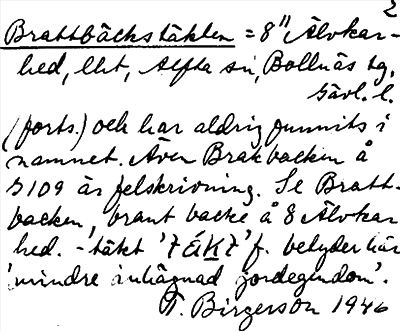 2
Brattbäckstäkten = 8" Älvkar-
hed, lht, Alfta sn, Bollnäs tg,
Gävl. l.
(forts.) och har aldrig funnits i
namnet. Även Brakbacken å
S109 är felskrivning. Se Bratt-
backen, brant backe å 8 Älvkar
hed. - täkt 'täkt' f. betyder här
'mindre inhägnad jordegendom'.
T. Birgerson 1946